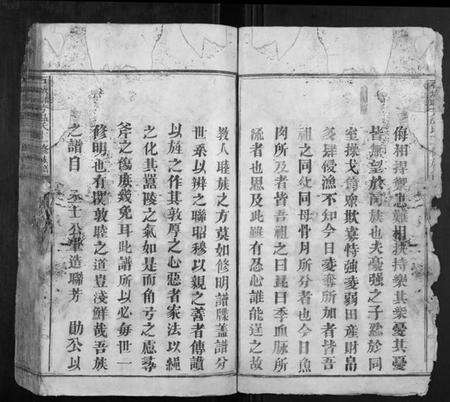 侮相捍禦患難相扶持樂其樂憂其憂
皆無望於同族也夫豪強之子蠶於同
室操戈欺寡恃強凌弱田產財帛
侵漁不知今日凌奪所加者皆吾
祖之同父同母骨月所分者也今日魚
肉所及者皆吾祖之曰昆曰季血脈所
流者也思及此雖有忍心誰能逞之故
教人睦族之方莫如修明譜牒蓋譜分
世系以辨之聯昭穆以親之善者傳讀
以旌之作其敦厚之心惡者家法以繩
之化其囂陵之氣如是而角弓之
斧之傷庶幾免耳此譜所以必每世一
修明也有裨敦睦之道豈淺鮮哉吾族
之譜自 公肇造聯芳 勛公以